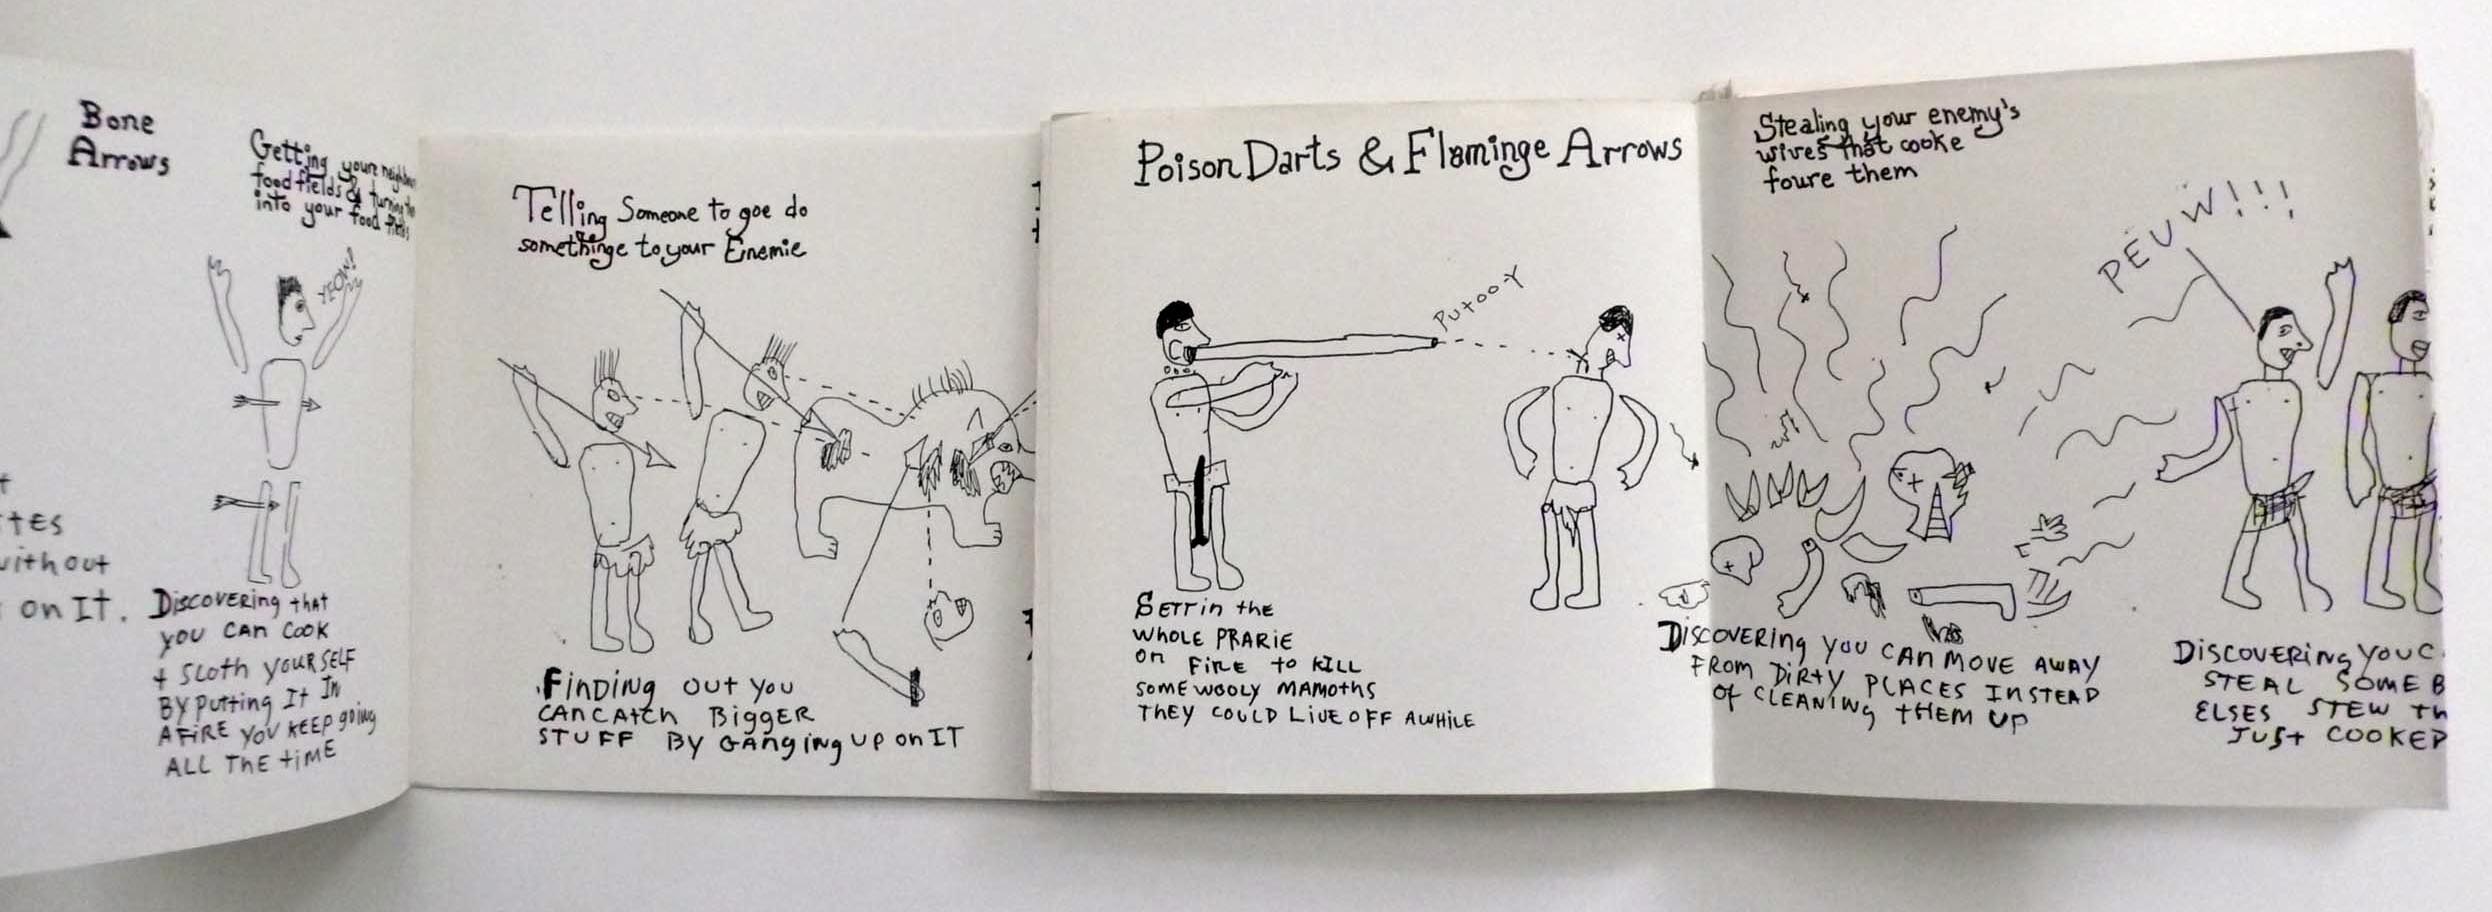 Bone
Arrows
Getting youre neighbours
food fields & turning them
into your food fields
YEOW!
tes
without
on It.
Discovering that
you can cook
+ sloth yourself
By putting It In
A Fire you keep going
All The time
Telling Someone to goe do
somethinge to your Enemie
Finding out you
can catch Bigger
stuff By ganging up on IT
Poison Darts & Flaminge Arrows
Putooy
Settin the
whole prarie
on Fire to kill
some wooly mamoths
they could Live off awhile
Stealing your enemy's
wives that cooke
foure them
PEUW!!!
Discovering you can move away
From Dirty places Instead
of cleaning them up
Discovering you c
steal some B
elses stew th
Just cooked